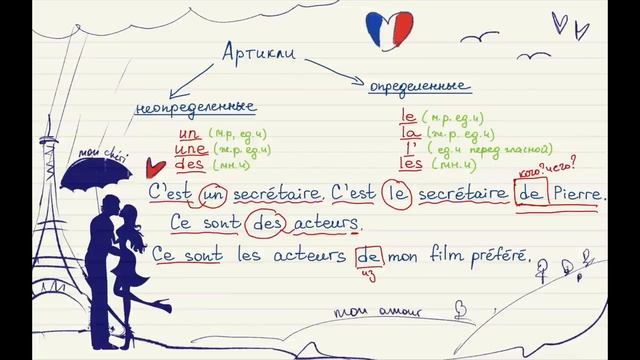 Артикли
неопределенные
определенные
un (м.р, ед.ч)
une (ж.р. ед.ч)
des (мн.ч)
le (м.р. ед.ч)
la (ж.р. ед.ч)
l' (ед.ч перед гласной)
les (мн.ч)
mon chéri
кого? чего?
C'est un secrétaire. C'est le secrétaire de Pierre.
Ce sont des acteurs.
Ce sont les acteurs de mon film préféré.
из
mon amour